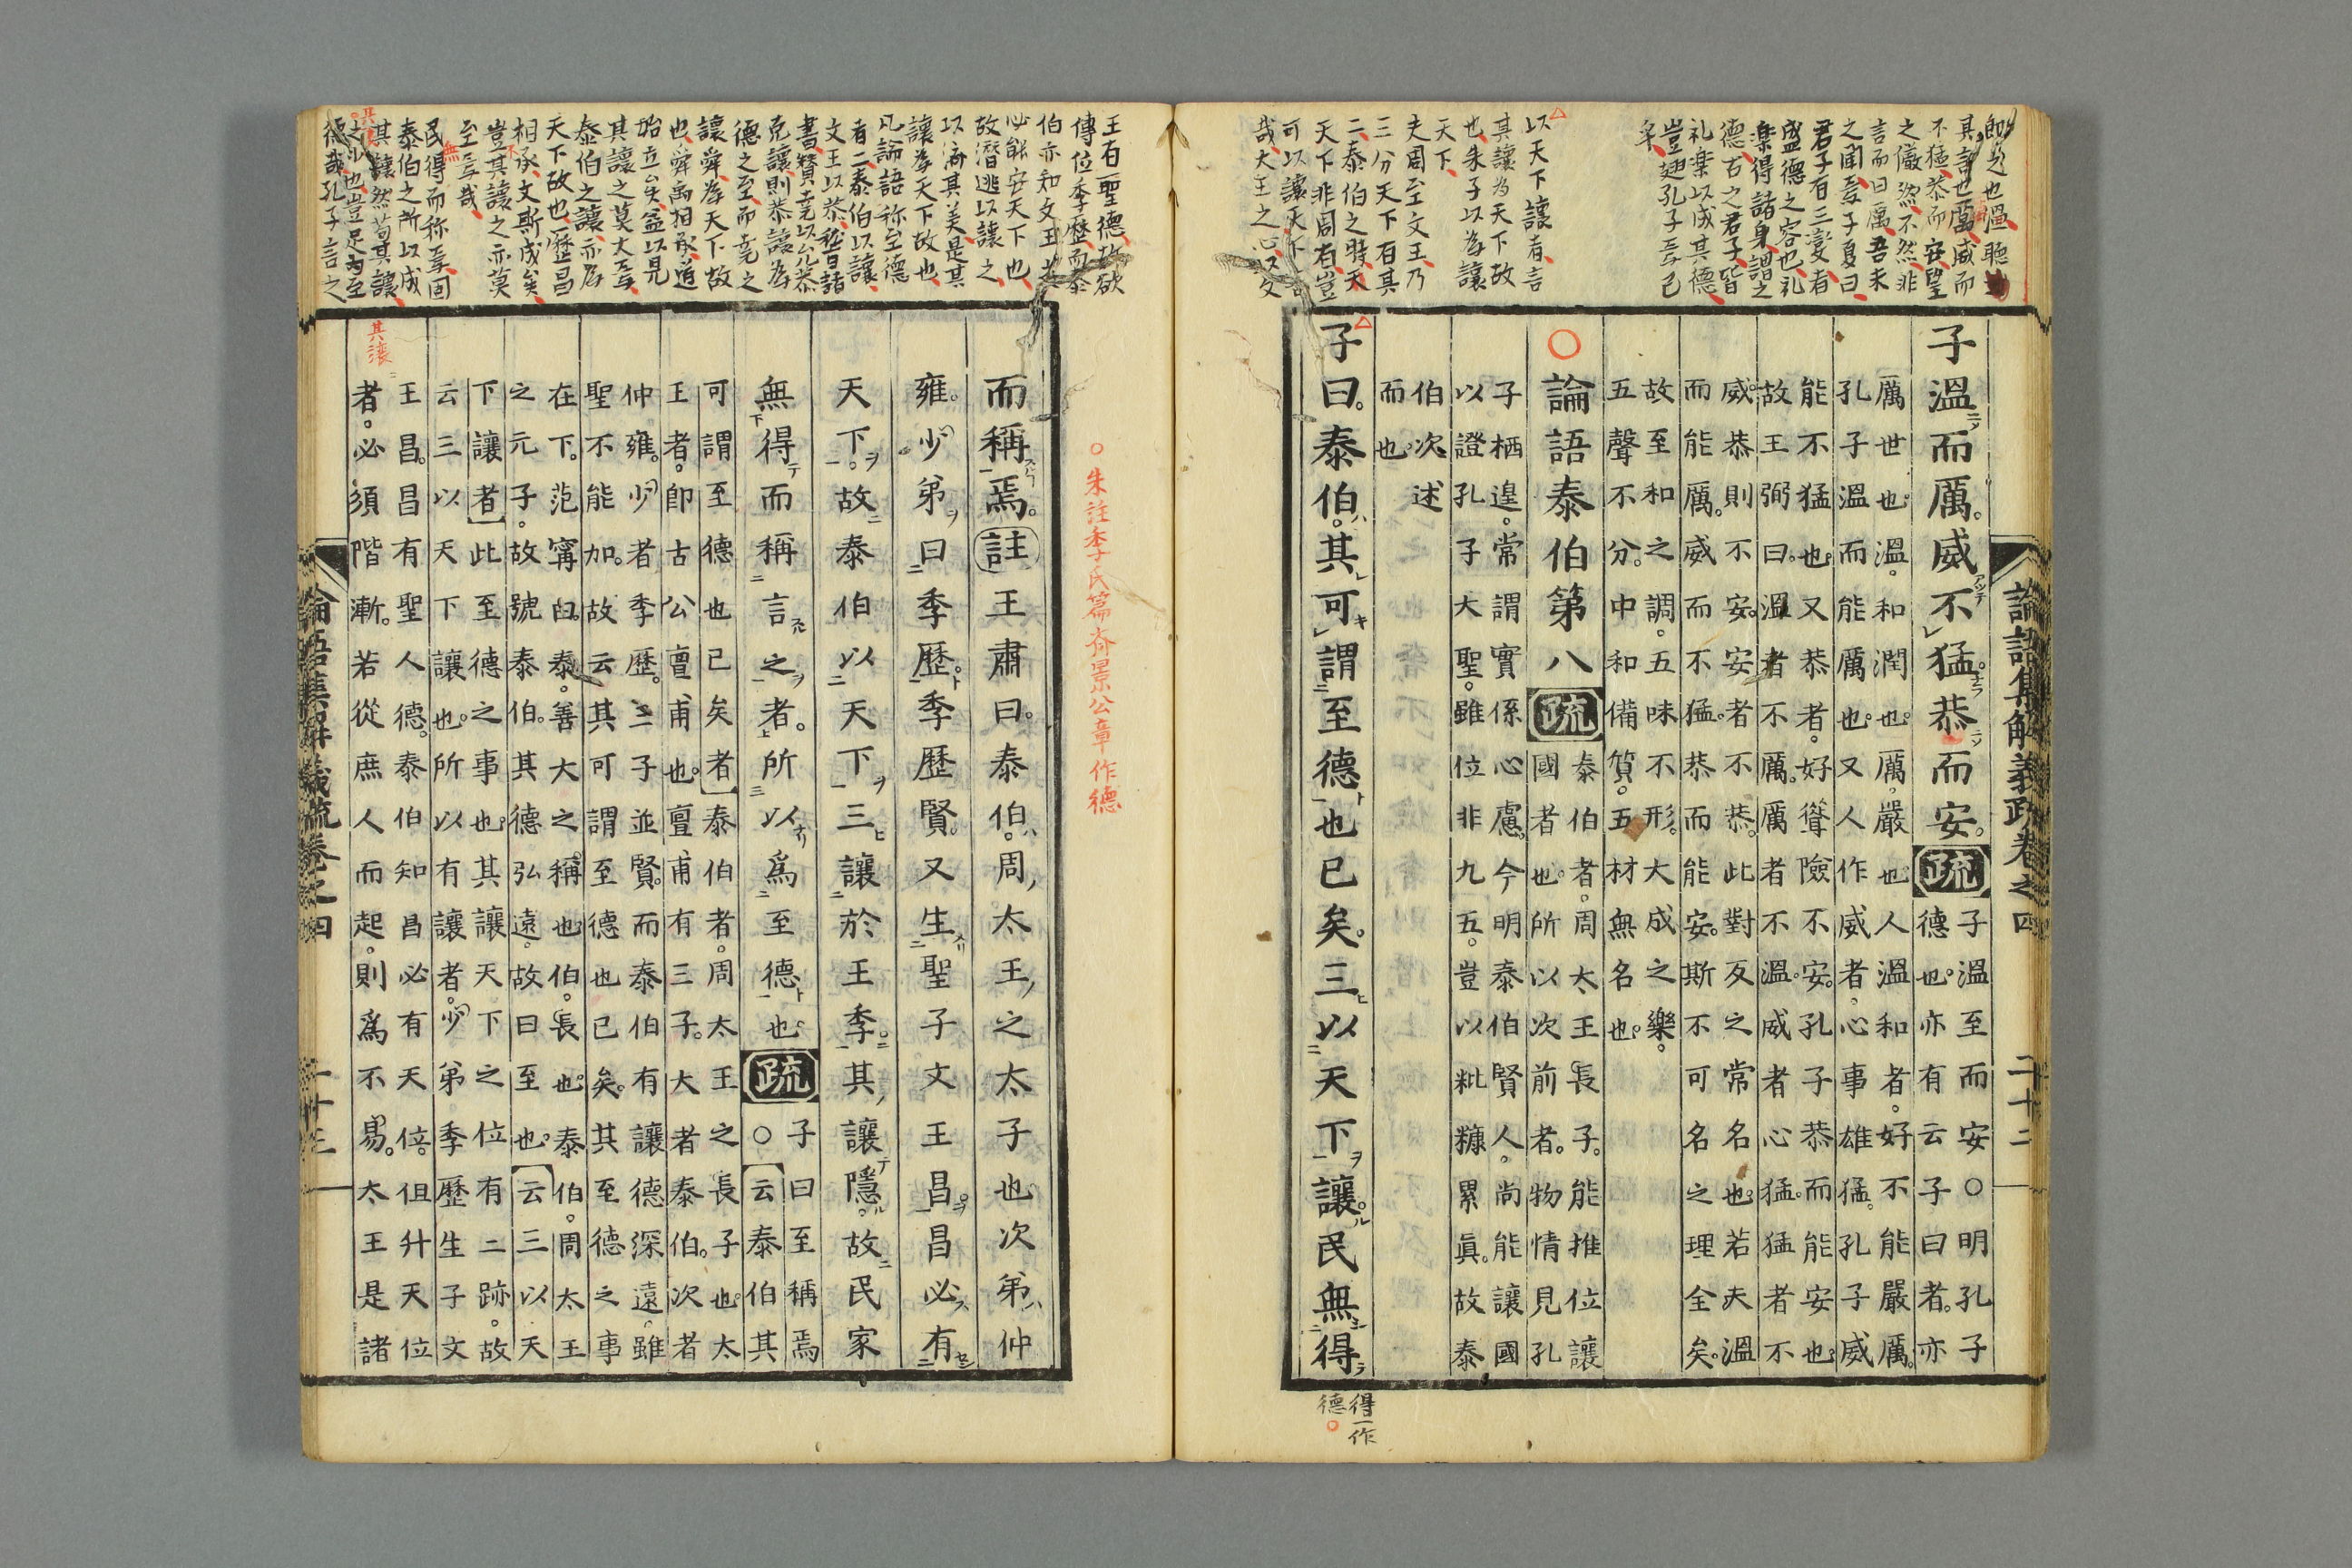 其言也厲威而
不猛恭而安望
之儼然不然非
言而曰厲吾未
之聞焉子夏曰
君子有三變者
盛德之容也礼
樂得諸身謂之
德古之君子皆
礼樂以成其德
豈翅孔子焉已
矣
以天下讓者言
其讓為天下故
也朱子以為讓
天下
夫周至文王乃
三分天下有其
二泰伯之時天
天下非周有豈
可以讓天下
哉大王之心以文
論語集解義疏卷之四 二十二
子溫而厲。威不猛。恭而安。疏
子溫至而安○明孔子
德也。亦有云子曰者。亦
厲世也。溫。和潤也。厲。嚴也人溫和者。好不能嚴厲。
孔子溫而能厲也。又人作威者。心事雄猛。孔子威
能不猛也。又恭者。好聳險不安。孔子恭而能安也。
故王弼曰。溫者不厲。厲者不溫。威者心猛。猛者不
威。恭則不安。安者不恭。此對反之常名也。若夫溫
而能厲。威而不猛。恭而能安。斯不可名之理全矣。
故至和之調。五味不形。大成之樂。
五聲不分。中和備質。五材無名也。
論語泰伯第八疏
泰伯者。周太王長子。能推位讓
國者也。所以次前者。物情見孔
子栖遑。常謂實係心慮。今明泰伯賢人。尚能讓國
以證孔子大聖。雖位非九五。豈以粃糠累眞。故泰
伯次述
而也。
子曰。泰伯。其可謂至德也已矣。三以天下讓。民無得
得一作
德
朱註季氏篇齊景公章作德
王有聖德故欲
傳位季歷而泰
伯亦知文王
必能安天下也
故潛逃以讓之
以濟其美是其
讓為天下故也
凡論語称至德
者二泰伯以讓
文王以恭稽諸
書賛堯以允恭
克讓則恭讓為
德之至而堯之
讓舜為天下故
也舜禹相承道
始立矣益以見
其讓之莫大焉
泰伯之讓亦為
天下故也歷昌
相承文斯成矣
豈其讓之亦莫
至焉哉
民得而称焉固
泰伯之所以成
其讓然苟其讓
之小也豈足為至
德哉孔子言之
而稱焉。註王肅曰。泰伯。周太王之太子也次弟仲
雍。少弟曰季歷。季歷賢。又生聖子文王昌。昌必有
天下。故泰伯以天下三讓於王季。其讓隱。故民家
無得而稱言之者。所以爲至德也。疏
子曰至稱焉
○云泰伯其
可謂至德也已矣者泰伯者。周太王之長子也。太
王者。即古公亶甫也。亶甫有三子。大者泰伯。次者
仲雍。少者季歷。三子並賢。而泰伯有讓德深遠。雖
聖不能加。故云其可謂至德也已矣。其至德之事
在下。范甯曰。泰。善大之稱也伯。長也。泰伯。周太王
之元子。故號泰伯。其德弘遠。故曰至也。云三以天
下讓者此至德之事也。其讓天下之位有二跡。故
云三以天下讓也。所以有讓者。少弟季歷生子文
王昌。昌有聖人德。泰伯知昌必有天位。但升天位
者。必須階漸。若從庶人而起。則爲不易。太王是諸
其讓
論語集解義疏卷之四 二十三